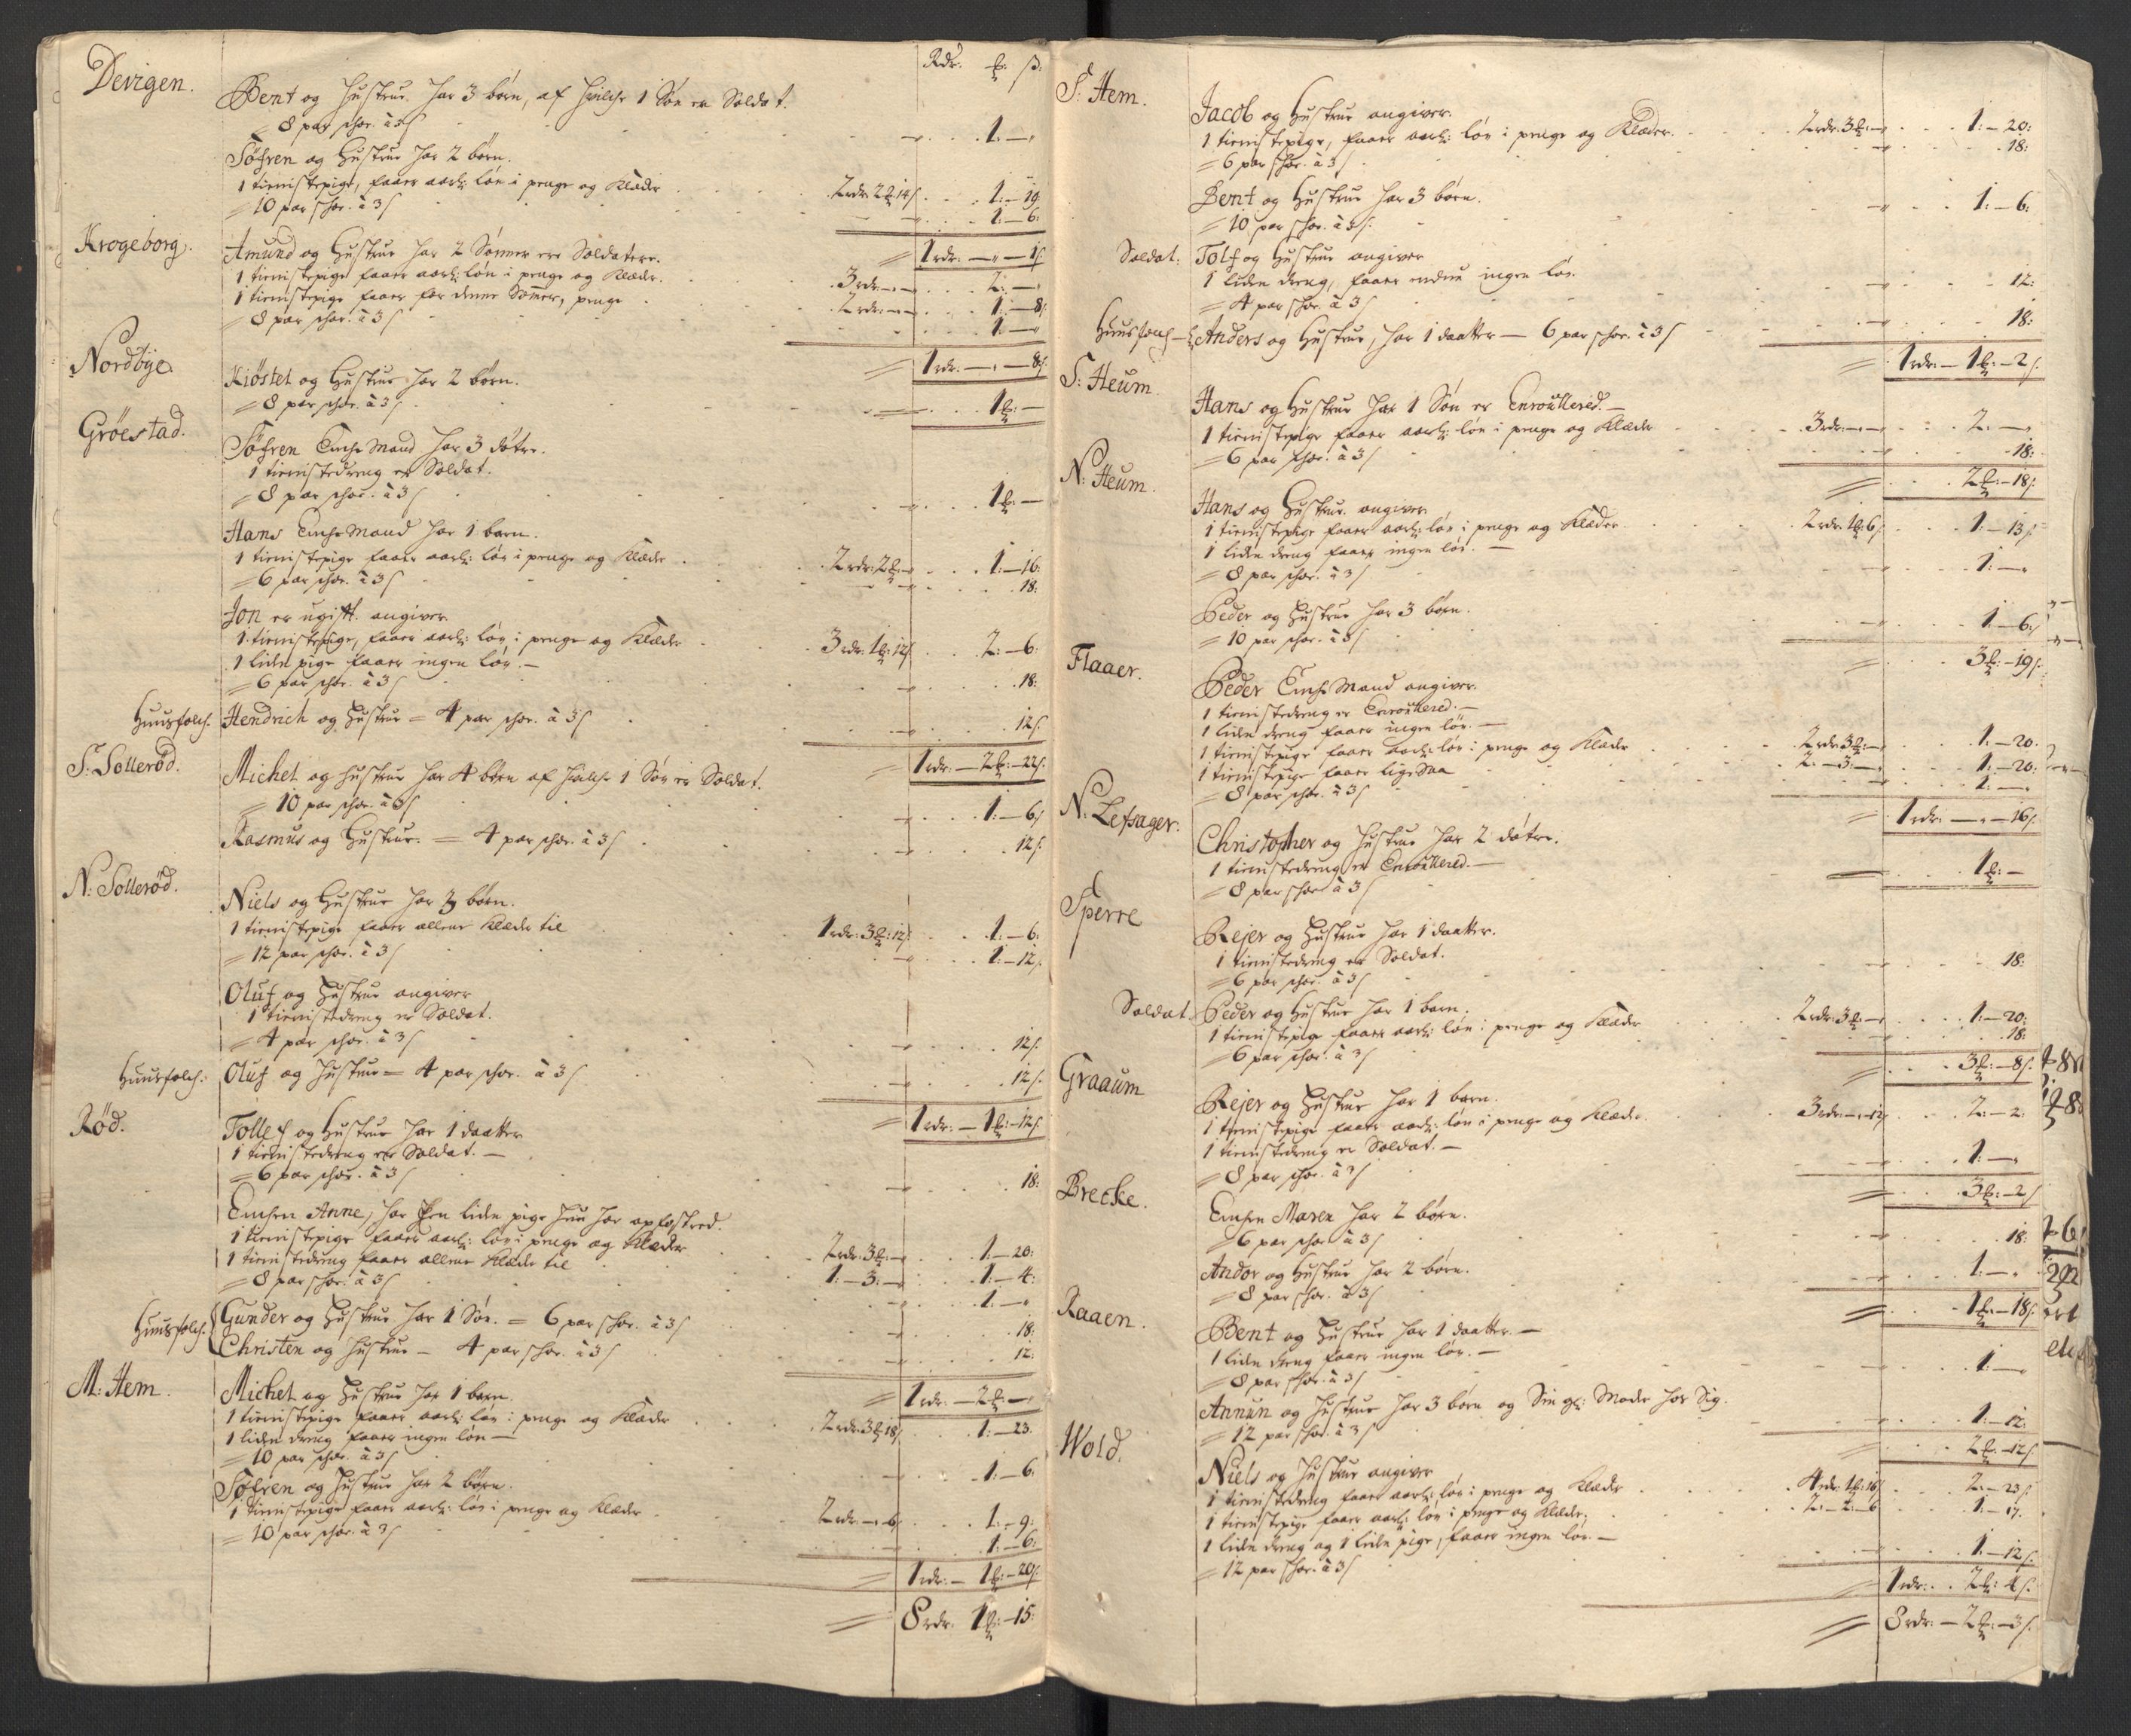 Rdr. ꝑ: ß:
Devigen.
Bent og Hustrue har 3 børn, af hvilche 1 Søn er Soldat.
= 8 par schoe. à 3 s — 1:—
Søfren og Hustrue har 2 børn.
1 tienistepige, faaer aarl: løn i penge og Klæder 2rdr: 2: 14s 1:—19:
= 10 par schoe. à 3 s 1:—6:
= 1rdr:——1s
Krogeborg.
Amund og Hustrue har 2 Sønner ere Soldatere.
1 tienistepige faaer aarl: løn i penge og Klæder. 3rdr.—— 2:—
1 tienistepige faaer for denne Sommer, penge 2rdr:—— 1:—8
= 8 par schoe. à 3 s 1:—
= 1rdr:——8s
Nordbye
Kiøstel og Hustrue har 2 børn.
= 8 par schoe. à 3 s 1:—
Grøestad.
Søfren Enche Mand har 3 døtre.
1 tienistedreng er Soldat.
= 8 par schoe. à 3 s 1:—
Hans Enche Mand har 1 barn.
1 tienistepige faaer aarl: løn i penge og Klæder 2rdr: 2:— 1:—16:
= 6 par schoe. à 3 s 18:
Jon er ugift. angiver
1 tienistepige, faaer aarl: løn i penge og Klæder 3rdr. 1: 12s 2:—6:
1 liden pige faaer ingen løn.—
= 6 par schoe. à 3 s 18:
Huusfolch. Hendrich og Hustrue = 4 par schoe. à 3 s 12s.
= 1rdr:—2:—22s.
S: Sollerød.
Michel og hustrue har 4 børn af hvilche 1 Søn er Soldat.
= 10 par schoe. à 3 s 1:—6s
Rasmus og Hustrue. = 4 par schoe. à 3 s 12s.
N: Sollerød.
Niels og Hustrue har 3 børn.
1 tienistepige faaer allene Klæder til 1rdr: 3: 12s 1:—6:
= 12 par schoe. à 3 s 1:—12s.
Oluf og Hustrue angiver
1 tienistedreng er Soldat.
= 4 par schoe. à 3 s 12s.
Huusfolch: Oluf og Hustrue = 4 par schoe. à 3 s 12s.
= 1rdr:—1:—12s.
Rød.
Tollef og Hustrue har 1 daatter
1 tienistedreng er Soldat.—
= 6 par schoe. à 3 s 18:
Enchen Anne, har een liden pige hun har opfostred.
1 tienistepige faaer aarl: løn i penge og Klæder 2rdr: 3:— 1:—20:
1 tienistedreng faaer allene Klæder til 1:—3:— 1:—4:
= 8 par schoe. à 3 s 1:—
Huusfolch. Gunder og Hustrue har 1 Søn. = 6 par schoe. à 3 s 18:
Christen og hustrue — 4 par schoe. à 3 s 12:
= 1rdr:—2:—
M: Hem.
Michel og Hustrue har 1 barn.
1 tienistepige faaer aarl: løn i penge og Klæder 2rdr: 3: 18s 1:—23.
1 liden dreng faaer ingen løn—
= 10 par schoe. à 3 s 1:—6:
Søfren og Hustrue har 2 børn.
1 tienistepige faaer aarl: løn i penge og Klæder 2rdr:—6 1:—9:
= 10 par schoe. à 3 s 1:—6:
= 1rdr:—1:—20s.
= 8rdr. 1:—15:
S: Hem.
Jacob og Hustrue angiver
1 tienistepige, faaer aarl: løn i penge og Klæder. 2rdr: 3:— 1:—20:
= 6 par schoe. à 3 s 18:
Bent og Hustrue har 3 børn.
= 10 par schoe. à 3 s 1:—6:
Soldat: Tolf og Hustrue angiver
1 liden dreng, faaer endnu ingen løn.
= 4 par schoe. à 3 s 12:
Huusfolch — Anders og Hustrue, har 1 daatter — 6 par schoe. à 3 s 18:
= 1rdr:—1:—2s.
S: Heum.
Hans og Hustrue har 1 Søn er Enroullered.—
1 tienistepige faaer aarl: løn i penge og Klæder 3rdr:—— 2.—
= 6 par schoe. à 3 s 18:
= 2:—18s.
N: Heum.
Hans og Hustrue. angiver
1 tienistepige faaer aarl: løn i penge og Klæder 2rdr: 1: 6s 1:—13s
1 liden dreng faaer ingen løn.—
= 8 par schoe. à 3 s 1:—
Peder og Hustrue har 3 børn.
= 10 par schoe. à 3 s 1:—6s
= 3:—19s.
Flaaer.
Peder Enche Mand angiver.
1 tienistedreng er Enroullered.—
1 liden dreng faaer ingen løn.—
1 tienistepige faaer aarl: løn i penge og Klæder 2rdr: 3:— 1:—20.
1 tienistepige faaer lige Saa 2.—3:— 1:—20:
= 8 par schoe. à 3 s 1:—
= 1rdr:——16s.
N: Lefsager.
Christopher og Hustrue har 2 døtre.
1 tienistedreng er Enroullered.—
= 8 par schoe à 3 s 1:—
Sperre
Rejer og Hustrue har 1 daatter.
1 tienistedreng er Soldat.
= 6 par schoe. à 3 s 18:
Soldat. Peder og Hustrue har 1 barn.
1 tienistepige faaer aarl: løn i penge og Klæder 2rdr: 3:— 1:—20:
= 6 par schoe. à 3 s 18:
= 3:—8s.
Graaum
Rejer og Hustrue har 1 barn.
1 tienistepige faaer aarl: løn i penge og Klæder. 3rdr:—12s 2:—2:
1 tienistedreng er Soldat.—
= 8 par schoe. à 3 s 1:—
= 3:—2s
Brecke.
Enchen Maren har 2 børn.
= 6 par schoe à 3 s 18:
Andor og Hustrue har 2 børn.
= 8 par schoe. à 3 s 1:—
= 1:—18s.
Raaen.
Bent og Hustrue har 1 daatter.—
1 liden dreng faaer ingen løn.—
= 8 par schoe. à 3 s 1:—
Annun og Hustrue har 3 børn og Sin gl: Moder hos Sig.
= 12 par schoe. à 3 s 1:—12:
= 2:—12s
Wold.
Niels og Hustrue angiver
1 tienistedreng faaer aarl: løn i penge og Klæder 4rdr: 1: 16s 2:—23s.
1 tienistepige faaer aarl: løn i penge og Klæder. 2:—2:—6 1:—17.
1 liden dreng og 1 liden pige, faaer ingen løn.—
= 12 par schoe. à 3 s 1:—12s.
= 1rdr:. 2: 4s.
= 8rdr:—2:—3s.